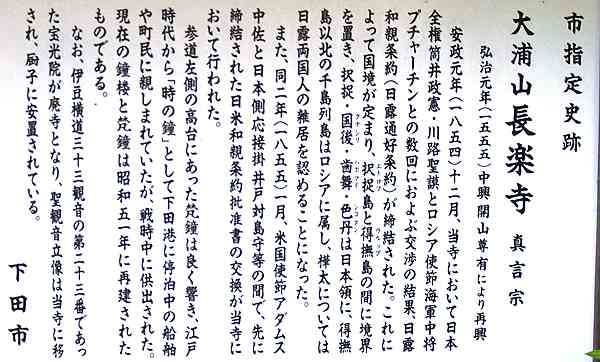 市指定史跡
大浦山長楽寺 真言宗
弘治元年(一五五五)中興開山尊有により再興
安政元年(一八五四)十二月、当寺において日本
全権筒井政憲・川路聖謨とロシア使節海軍中将
プチャーチンとの数回におよぶ交渉の結果、日露
和親条約(日露通好条約)が締結された。これに
よって国境が定まり、択捉島と得撫島の間に境界
を置き、択捉・国後・歯舞・色丹は日本領に、得撫
島以北の千島列島はロシアに属し、樺太については
日露両国人の雑居を認めることになった。
また、同二年(一八五五)一月、米国使節アダムス
中佐と日本側応接掛井戸対島守等の間で、先に
締結された日米和親条約批准書の交換が当寺に
おいて行われた。
参道左側の高台にあった梵鐘は良く響き、江戸
時代から「時の鐘」として下田港に停泊中の船舶
や町民に親しまれていたが、戦時中に供出された。
現在の鐘楼と梵鐘は昭和五一年に再建された
ものである。
なお、伊豆横道三十三観音の第二十三番であっ
た宝光院が廃寺となり、聖観音立像は当寺に移
され、厨子に安置されている。
下田市